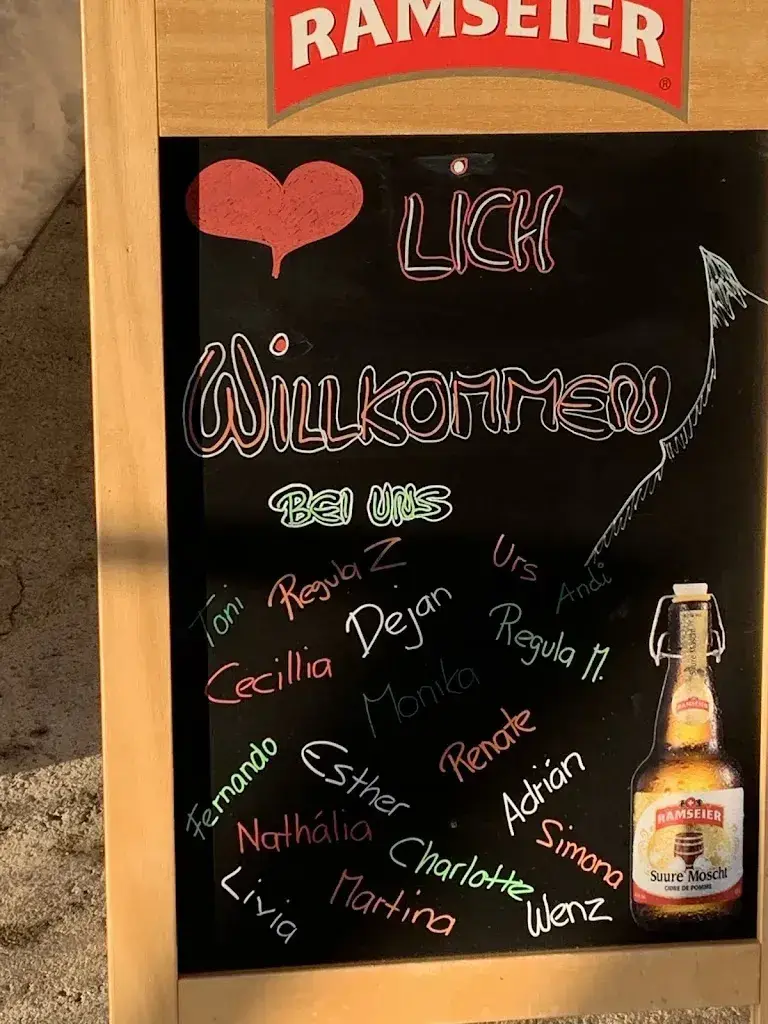 RAMSEIER
®
❤ LICH
WILLKOMMEN
BEI UNS
Toni Regula Z Urs Andi
Cecillia Dejan Regula M.
Monika
Fernando Esther Renate Adrián
Nathália Charlotte Simona
Livia Martina Wenz
RAMSEIER
RAMSEIER
Suure Moscht
CIDRE DE POMME